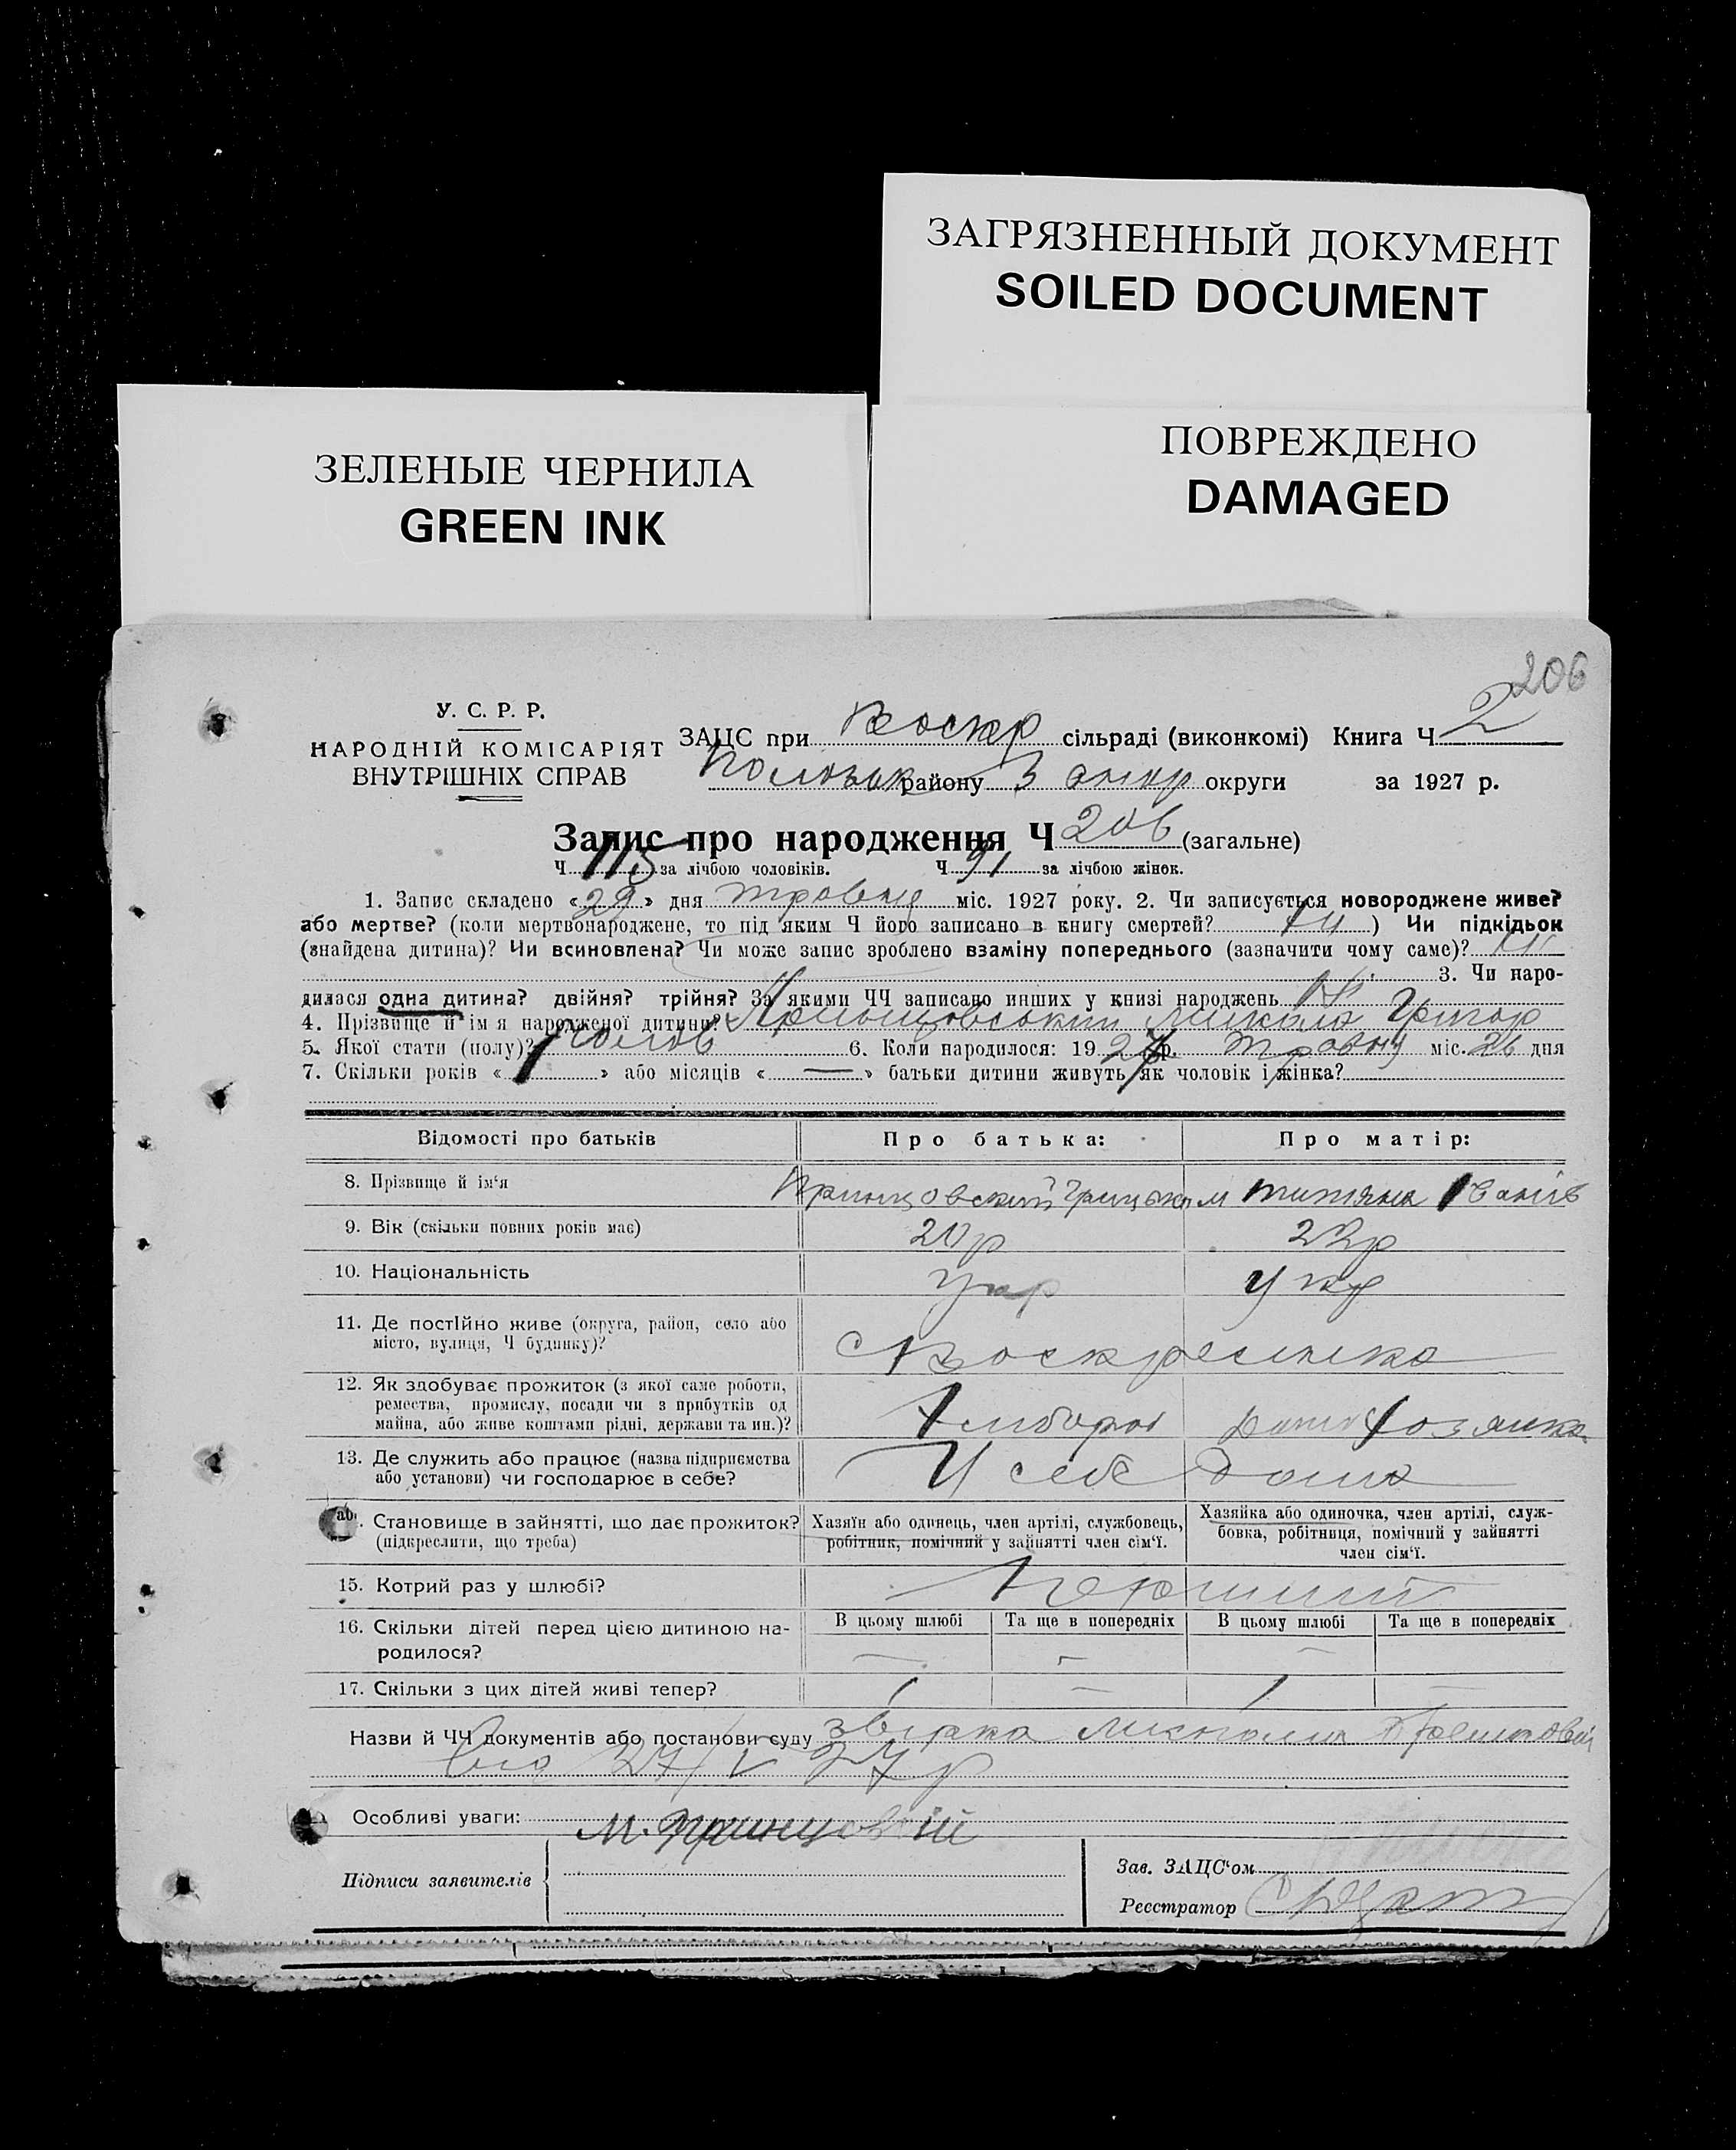 ЗАГРЯЗНЕННЫЙ ДОКУМЕНТ
SOILED DOCUMENT
ЗЕЛЕНЫЕ ЧЕРНИЛА
GREEN INK
ПОВРЕЖДЕНО
DAMAGED
206
У. С. Р. Р.
НАРОДНІЙ КОМІСАРІЯТ
ВНУТРІШНІХ СПРАВ
ЗАЦС при Воскр сільраді (виконкомі) Книга Ч 2
району округи за 1927 р.
Запис про народження Ч 206 (загальне)
Ч 115 за лічбою чоловіків. Ч 91 за лічбою жінок.
1. Запис складено « 29 » дня травня міс. 1927 року. 2. Чи записується новороджене живе?
або мертве? (коли мертвонароджене, то під яким Ч його записано в книгу смертей? ) Чи підкідьок
(знайдена дитина)? Чи всиновлена? Чи може запис зроблено взаміну попереднього (зазначити чому саме)?
3. Чи наро-
дилася одна дитина? двійня? трійня? За якими ЧЧ записано инших у книзі народжень
4. Прізвище й ім я народженої дитини? Микола Григор
5. Якої стати (полу)? Чолов 6. Коли народилося: 19 27 р. травня міс. 26 дня
7. Скільки років « 1 » або місяців « — » батьки дитини живуть як чоловік і жінка?
Відомості про батьків
Про батька:
Про матір:
8. Прізвище й ім‘я
Принцовский Грицько
Титяна Іванів
9. Вік (скільки повних років має)
20 р
22 р
10. Національність
Укр
Укр
11. Де постійно живе (округа, район, село або
місто, вулиця, Ч будинку)?
с Воскресенка
12. Як здобуває прожиток (з якої саме роботи,
ремества, промислу, посади чи з прибутків од
майна, або живе коштами рідні, держави та ин.)?
Хлібороб
хозяика
13. Де служить або працює (назва підприємства
або установи) чи господарює в себе?
У себе дома
Становище в зайнятті, що дає прожиток?
(підкреслити, що треба)
Хазяїн або одинець, член артілі, службовець,
робітник, помічний у зайнятті член сім‘ї.
Хазяйка або одиночка, член артілі, служ-
бовка, робітниця, помічний у зайнятті
член сім‘ї.
15. Котрий раз у шлюбі?
Перший
16. Скільки дітей перед цією дитиною на-
родилося?
В цьому шлюбі
Та ще в попередніх
В цьому шлюбі
Та ще в попередніх
— — —
17. Скільки з цих дітей живі тепер?
1 — 1 —
Назви й ЧЧ документів або постанови суду
від 27/V 27 р
Особливі уваги:
М. Принцовій
Підписи заявителів
Зав. ЗАЦС‘ом
Реєстратор